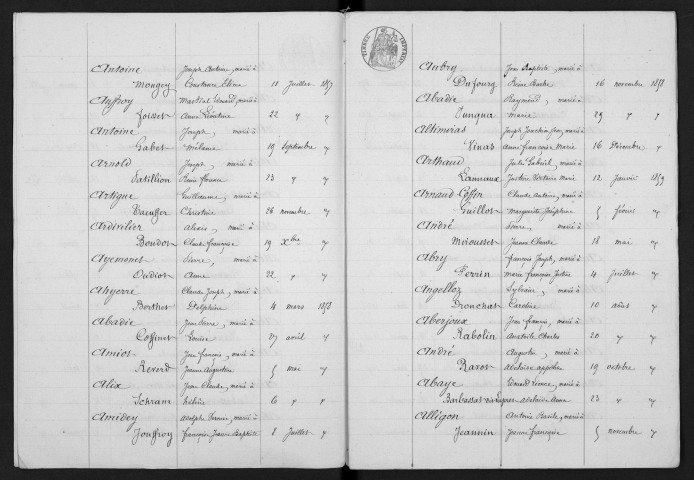 Antoine Joseph Antoine, marié à
Mougey Constance Elina 11 Juillet 1857
Anffroy Martial Edouard, marié à
Anne Léontine 22 " "
Antoine Joseph, marié à
Gabet Mélanie 19 Septembre "
Arnold Joseph, marié à
Patillion 23 " "
Artigue Guillaume, marié à
Christine 26 novembre "
Ardivilier Alexis, marié à
Boudot Claude françoise 19 Xbre "
Ayemonet Pierre, marié à
Oudiot Anne 22 " "
Ahyerre Claude Joseph, marié à
Berthet Delphine 4 mars 1858
Abadie Jean Pierre, marié à
Coffinet Louise 27 avril "
Amiot Jean françois, marié à
Reverd Jeanne Augustine 5 mai "
Alix Jean Claude, marié à
Schram hélène 6 " "
Amidey Adolphe Pernin, marié à
Jouffroy françoise Jeanne Baptiste 8 Juillet "
TIMBRE IMPERIAL
Aubry Jean Baptiste, marié à
Dufourg Reine Barbe 16 novembre 1858
Abadie Raymond, marié à
Junqua Marie 29 " "
Altimiras Joseph Joachim Jean, marié à
Vinas Anne françoise Marie 16 Décembre "
Arthaud Jules Gabriel, marié à
Lannaux Justine Victoire Marie 12 Janvier 1859
Arnaud Coffin Claude Antoine, marié à
Guillot Marguerite Joséphine 5 février "
André Pierre, marié à
Moiousset Jeanne Claude 18 mai "
Abry françois Joseph, marié à
Perrin Marie françoise Justine 4 Juillet "
Angelloz Sylvain, marié à
Bronchat Caroline 10 août "
Aberjoux Jean françois, marié à
Rabolin Anatoile Charles 20 " "
André Augustin, marié à
Ravot Adelaïde 19 octobre "
Abaye Edouard Léonce, marié à
Barbassat Adelaïde Anne 23 " "
Alligon Antoine Basile, marié à
Jeannin Jeanne françoise 5 novembre "